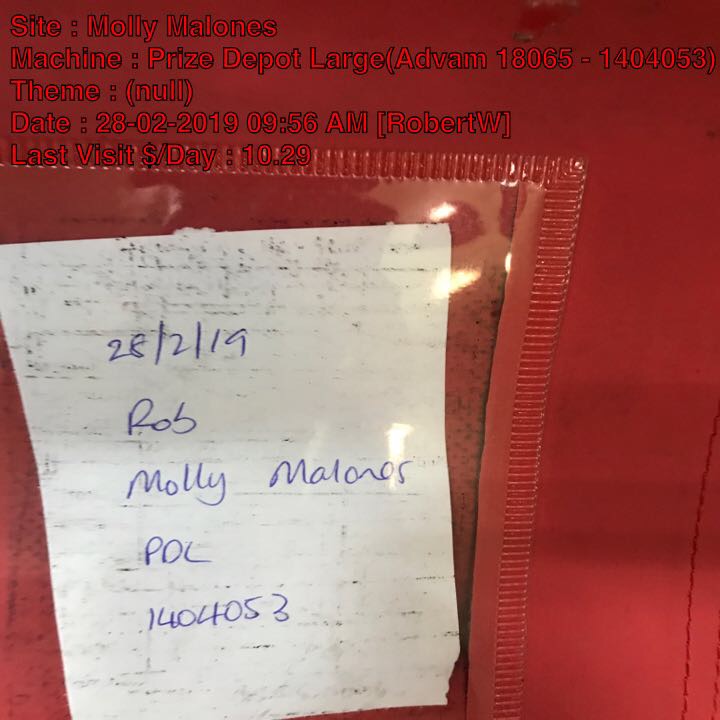 Site : Molly Malones
Machine : Prize Depot Large(Advam 18065 - 1404053)
Theme : (null)
Date : 28-02-2019 09:56 AM [RobertW]
Last Visit $/Day : 10.29
28/2/19
Rob
Molly Malones
PDL
1404053